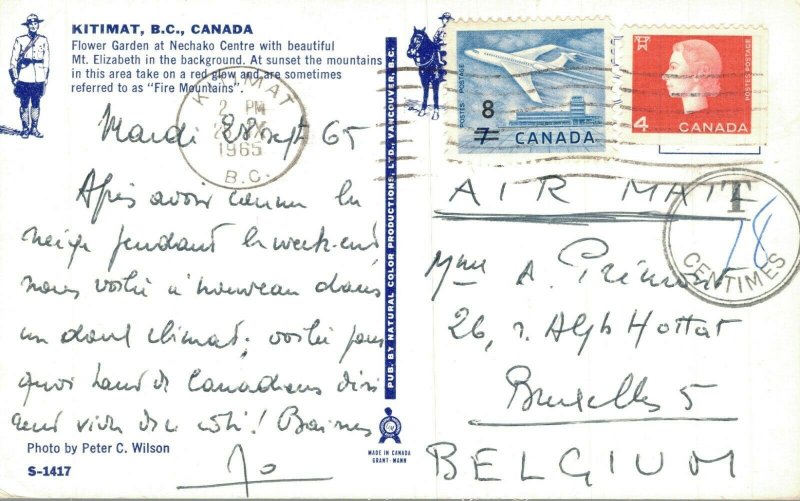 KITIMAT, B.C., CANADA
Flower Garden at Nechako Centre with beautiful
Mt. Elizabeth in the background. At sunset the mountains
in this area take on a red glow and are sometimes
referred to as "Fire Mountains".
KITIMAT
2 PM
1965
B.C.
Mardi 28 Sept 65
Après avoir connu la
neige pendant le week-end,
nous voilà à nouveau dans
un doux climat; voilà pour
quoi tant de Canadiens dési
rent vivre de ce côté! Baisers
Jo
Photo by Peter C. Wilson
S-1417
PUB. BY NATURAL COLOR PRODUCTIONS, LTD., VANCOUVER, B.C.
MADE IN CANADA
GRANT-MANN
POSTES POSTAGE
8
7 CANADA
POSTES POSTAGE
4
CANADA
AIR MAIL
T
78
CENTIMES
Mme A. Prémont
26, r. Alph Hottat
Bruxelles 5
BELGIUM